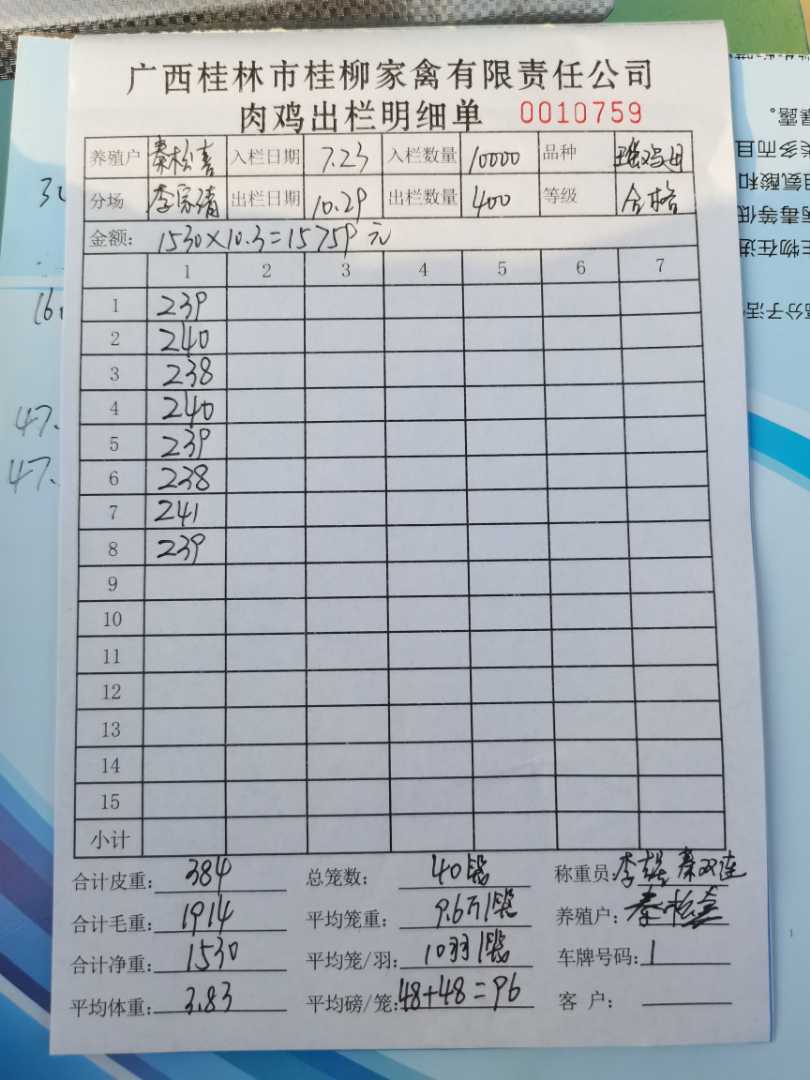 广西桂林市桂柳家禽有限责任公司
肉鸡出栏明细单 0010759
养殖户 秦松喜 入栏日期 7.23 入栏数量 10000 品种 瑶鸡母
分场 李家靖 出栏日期 10.29 出栏数量 400 等级 合格
金额: 1530×10.3=15759元
1 2 3 4 5 6 7
1 239
2 240
3 238
4 240
5 239
6 238
7 241
8 239
9
10
11
12
13
14
15
小计
合计皮重: 384 总笼数: 40 称重员: 秦双连
合计毛重: 1914 平均笼重: 9.6斤/ 养殖户: 秦松喜
合计净重: 1530 平均笼/羽: 10羽/ 车牌号码: 1
平均体重: 3.83 平均磅/笼: 48+48=96 客户:
暴露。
类多而且
阻氨酸和
病毒等低
生物在进
高分子活
47.
47.